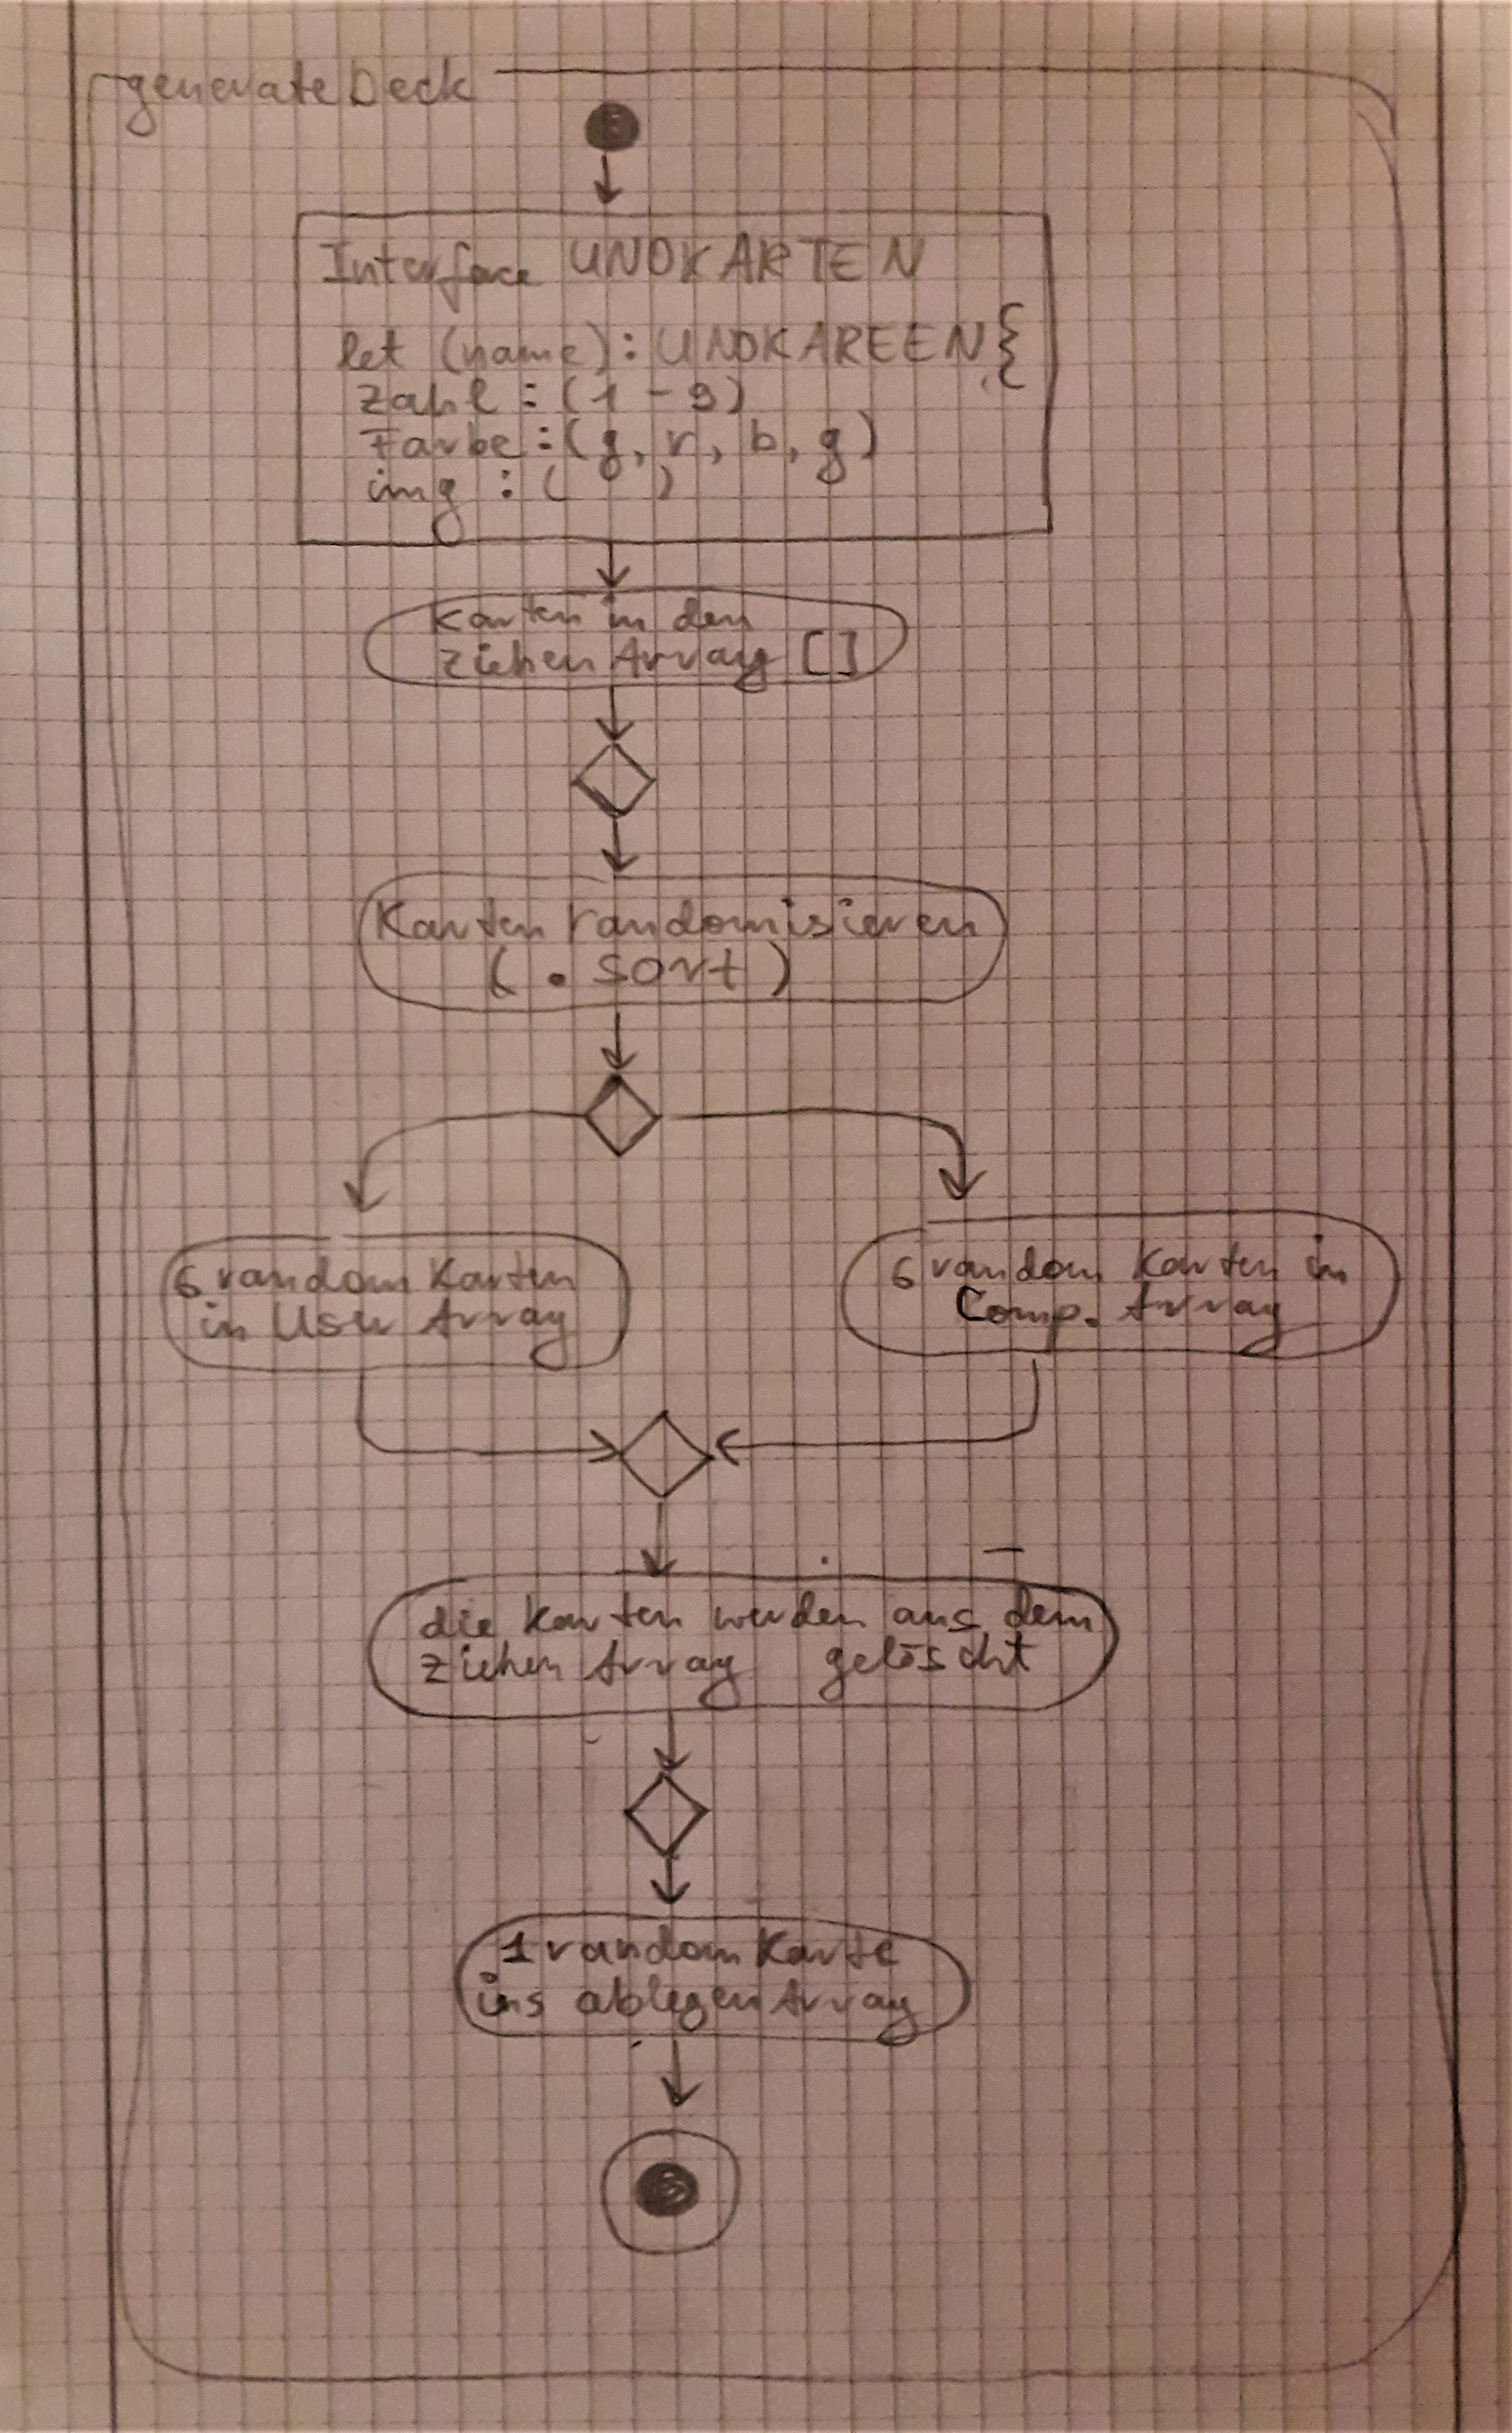 generateDeck
Interface UNOKARTEN
let (name): UNOKAREEN{
Zahl : (1 - 9)
Farbe : (g, r, b, g)
img : ( )
Karten in den
ziehen Array []
Karten randomisieren
( . sort )
6 random Karten
in User Array
6 random Karten in
Comp. Array
die Karten werden aus dem
ziehen Array gelöscht
1 random Karte
ins ablegen Array